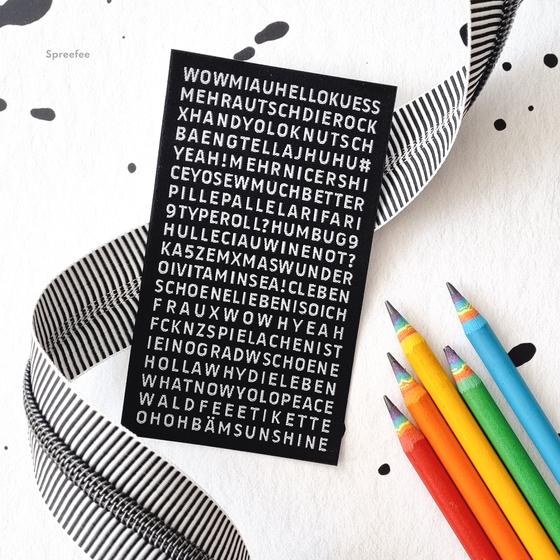 Spreefee
WOWMIAUHELLOKUESS
MEHRAUTSCHDIEROCK
XHANDYOLOKNUTSCH
BAENGTELLAJHUHU#
YEAH!MEHRNICERSHI
CEYOSEWMUCHBETTER
PILLEPALLELARIFARI
9TYPEROLL?HUMBUG9
HULLECIAUWINENOT?
KA5ZEMXMASWUNDER
OIVITAMINSEA!CLEBEN
SCHOENELIEBENISOICH
FRAUXWOWHYEAH
FCKNZSPIELACHENIST
IEINOGRADWSCHOENE
HOLLAWHYDIELEBEN
WHATNOWYOLOPEACE
WALDFEEETIKETTE
OHOHBÄMSUNSHINE